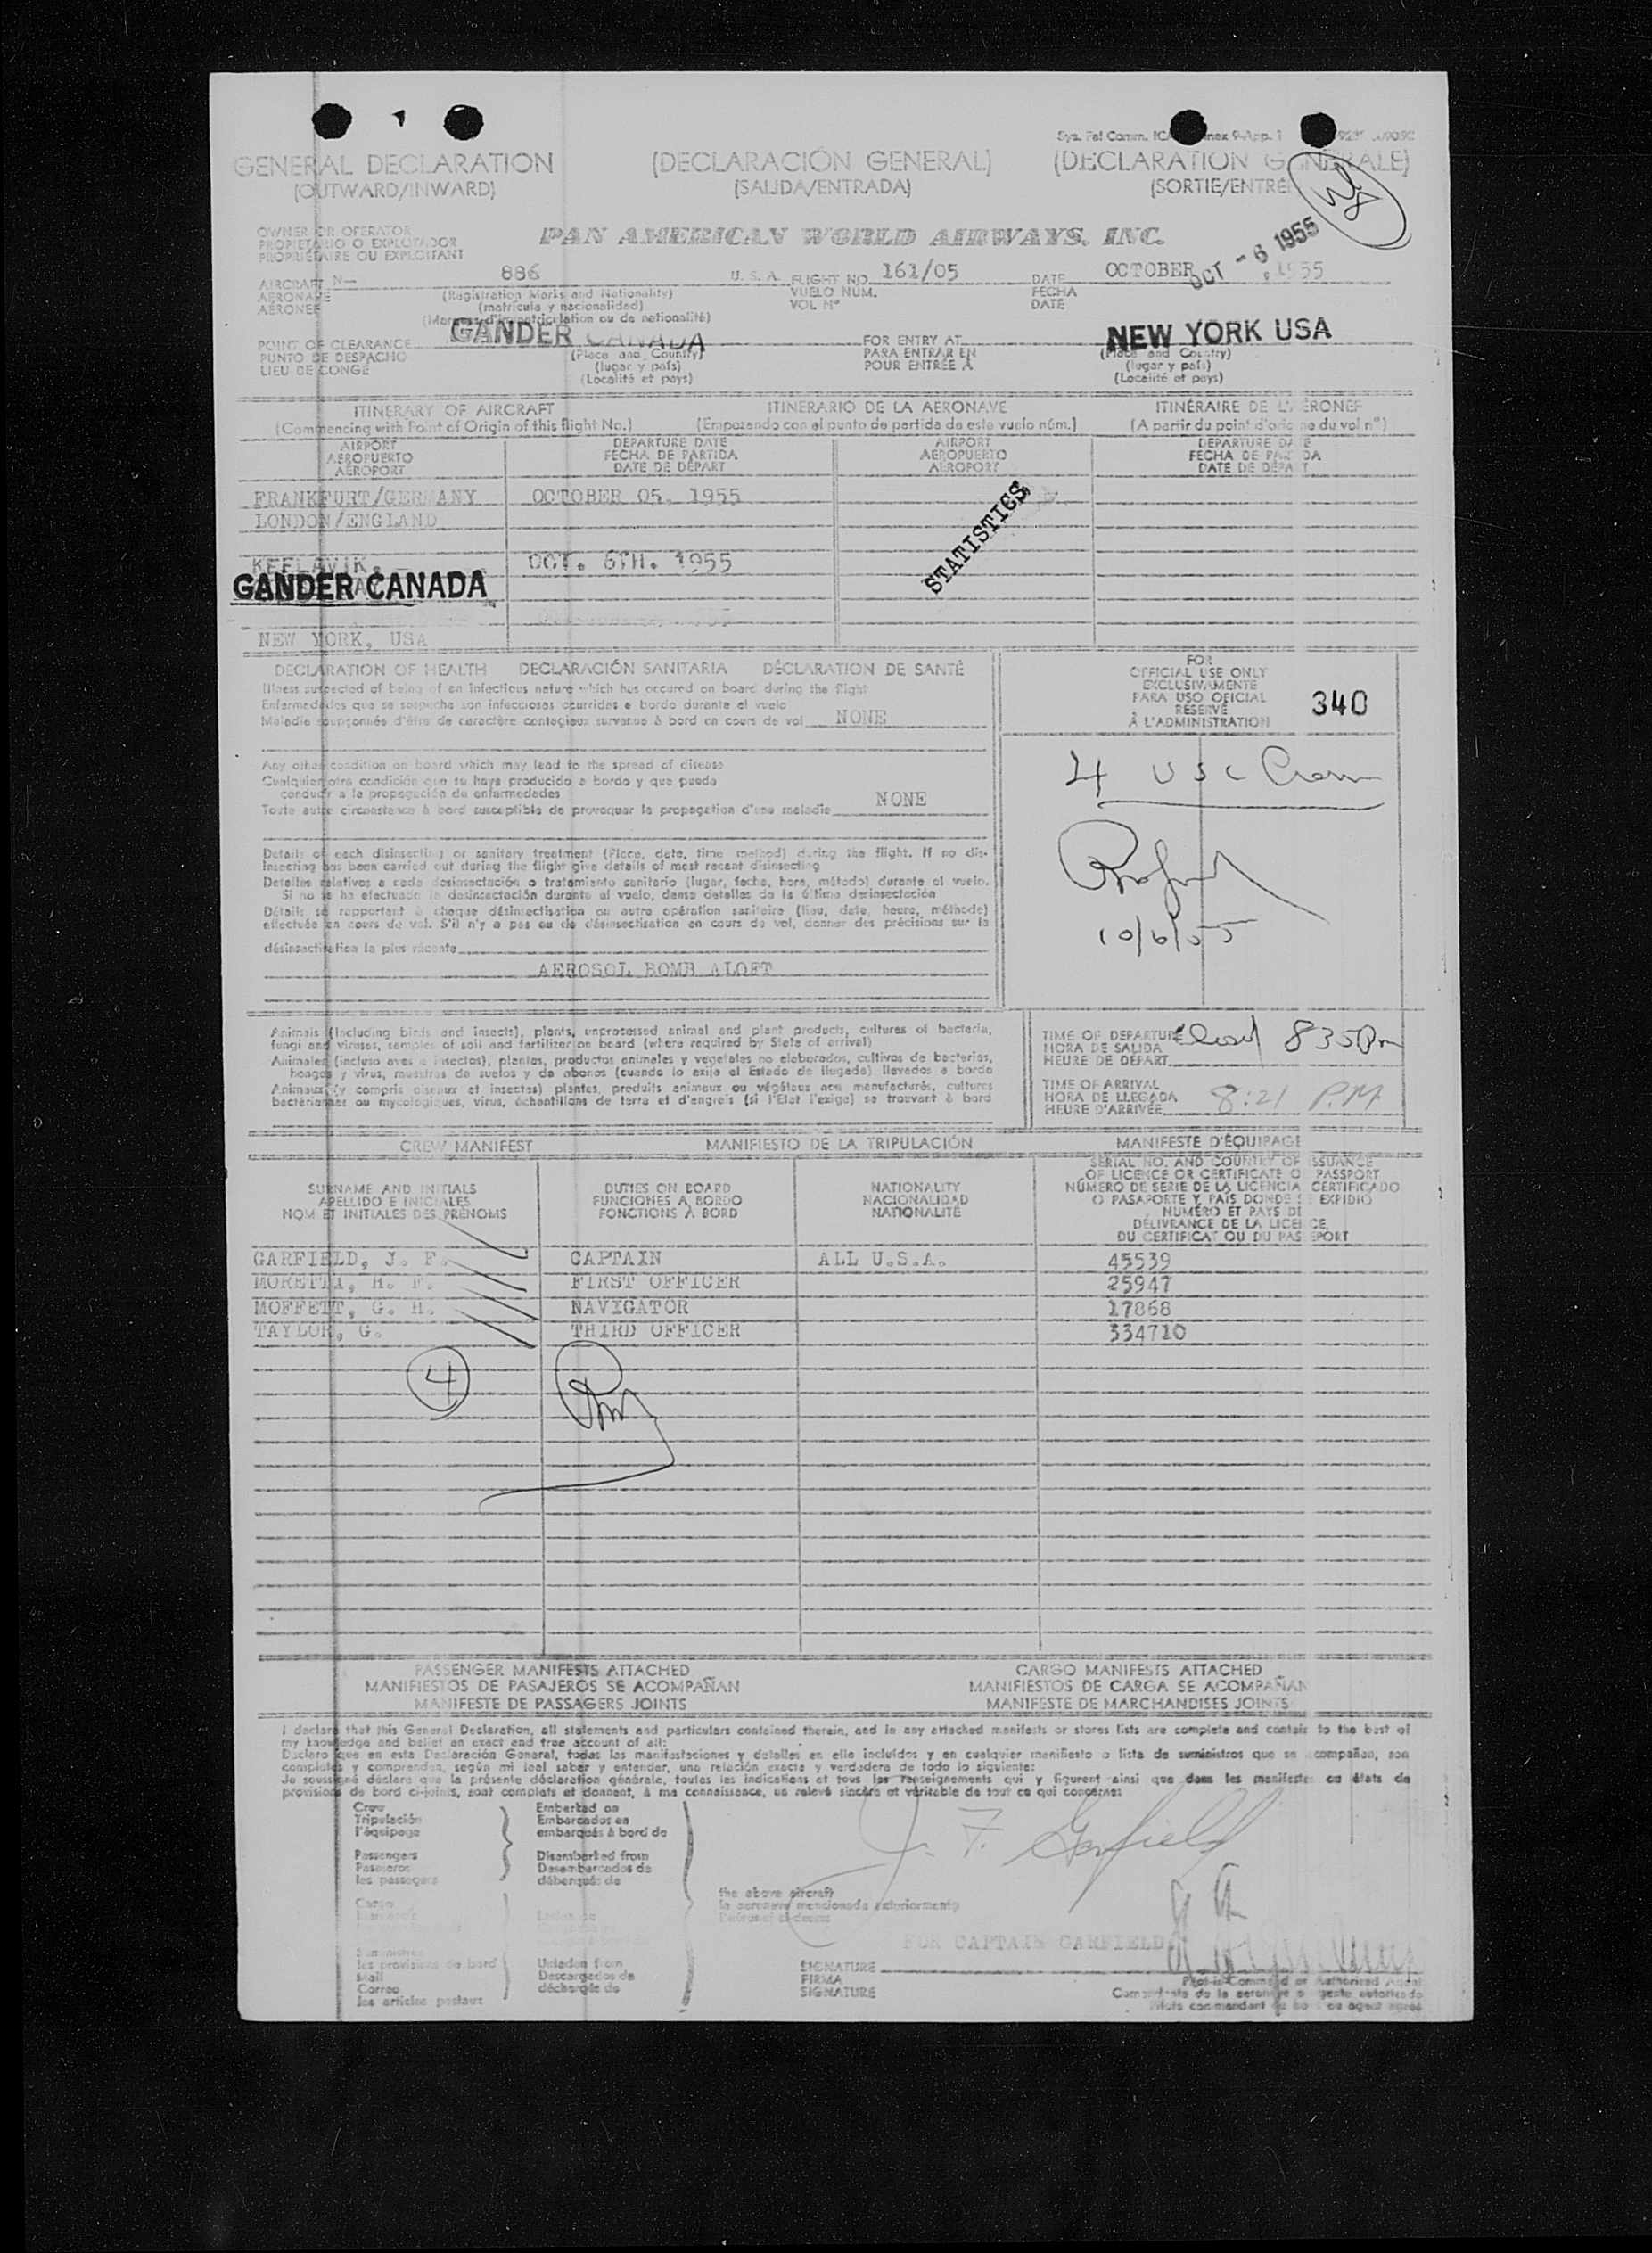 GENERAL DECLARATION (DECLARACIÓN GENERAL) (DECLARATION GÉNÉRALE)
(OUTWARD/INWARD) (SALIDA/ENTRADA) (SORTIE/ENTRÉE
OWNER OR OPERATOR
PROPIETARIO O EXPLOTADOR
PROPRIÉTAIRE OU EXPLOITANT
PAN AMERICAN WORLD AIRWAYS, INC.
OCT - 6 1955
AIRCRAFT N— 886 U. S. A. FLIGHT NO. 161/05 DATE OCTOBER , 1955
AERONAVE (Registration Marks and Nationality) VUELO NUM. FECHA
AÉRONEF (matrícula y nacionalidad) VOL N° DATE
(Marques d'immatriculation ou de nationalité)
POINT OF CLEARANCE GANDER CANADA FOR ENTRY AT NEW YORK USA
PUNTO DE DESPACHO (Place and Country) PARA ENTRAR EN (Place and Country)
LIEU DE CONGÉ (lugar y país) POUR ENTRÉE À (lugar y país)
(Localité et pays) (Localité et pays)
ITINERARY OF AIRCRAFT ITINERARIO DE LA AERONAVE ITINÉRAIRE DE L'AÉRONEF
(Commencing with Point of Origin of this flight No.) (Empezando con el punto de partida de este vuelo núm.) (A partir du point d'origine du vol n°)
AIRPORT DEPARTURE DATE AIRPORT DEPARTURE DATE
AEROPUERTO FECHA DE PARTIDA AEROPUERTO FECHA DE PARTIDA
AÉROPORT DATE DE DÉPART AÉROPORT DATE DE DÉPART
FRANKFURT/GERMANY OCTOBER 05. 1955
LONDON/ENGLAND
STATISTICS
KEFLAVIK, OCT. 6TH. 1955
GANDER CANADA
NEW YORK, USA
DECLARATION OF HEALTH DECLARACIÓN SANITARIA DÉCLARATION DE SANTÉ
Illness suspected of being of an infectious nature which has occured on board during the flight
Enfermedades que se sospecha son infecciosas ocurridas a bordo durante el vuelo
Maladie soupçonnée d'être de caractère contagieux survenue à bord en cours de vol NONE
Any other condition on board which may lead to the spread of disease
Cualquier otra condición que se haya producido a bordo y que pueda
conducir a la propagación de enfermedades
Toute autre circonstance à bord susceptible de provoquer la propagation d'une maladie NONE
Details of each disinsecting or sanitary treatment (Place, date, time method) during the flight. If no dis-
insecting has been carried out during the flight give details of most recent disinsecting
Detalles relativos a cada desinsectación o tratamiento sanitario (lugar, fecha, hora, método) durante el vuelo.
Si no se ha efectuado la desinsectación durante el vuelo, dense detalles de la última desinsectación
Détails se rapportant à chaque désinsectisation ou autre opération sanitaire (lieu, date, heure, méthode)
effectuée en cours de vol. S'il n'y a pas eu de désinsectisation en cours de vol, donner des précisions sur la
désinsectisation la plus récente
AEROSOL BOMB ALOFT
FOR
OFFICIAL USE ONLY
EXCLUSIVAMENTE
PARA USO OFICIAL
RÉSERVÉ
À L'ADMINISTRATION
340
4 USC Crew
10/6/55
Animals (including birds and insects), plants, unprocessed animal and plant products, cultures of bacteria,
fungi and viruses, samples of soil and fertilizer on board (where required by State of arrival)
Animales (incluso aves e insectos), plantas, productos animales y vegetales no elaborados, cultivos de bacterias,
hongos y virus, muestras de suelos y de abonos (cuando lo exija el Estado de llegada) llevados a bordo
Animaux (y compris oiseaux et insectes) plantes, produits animaux ou végétaux non manufacturés, cultures
bactériennes ou mycologiques, virus, échantillons de terre et d'engrais (si l'Etat l'exige) se trouvant à bord
TIME OF DEPARTURE 835 Pm
HORA DE SALIDA
HEURE DE DÉPART
TIME OF ARRIVAL
HORA DE LLEGADA 8:21 P.M.
HEURE D'ARRIVÉE
CREW MANIFEST MANIFIESTO DE LA TRIPULACIÓN MANIFESTE D'ÉQUIPAGE
SURNAME AND INITIALS
APELLIDO E INICIALES
NOM ET INITIALES DES PRÉNOMS
DUTIES ON BOARD
FUNCIONES A BORDO
FONCTIONS À BORD
NATIONALITY
NACIONALIDAD
NATIONALITÉ
SERIAL NO. AND COUNTRY OF ISSUANCE
OF LICENCE OR CERTIFICATE O PASSPORT
NÚMERO DE SERIE DE LA LICENCIA CERTIFICADO
O PASAPORTE Y PAÍS DONDE SE EXPIDIÓ
NUMÉRO ET PAYS DE
DÉLIVRANCE DE LA LICENCE,
DU CERTIFICAT OU DU PASSEPORT
GARFIELD, J. F. CAPTAIN ALL U.S.A. 45539
MORETTI, H. F. FIRST OFFICER 25947
MOFFETT, G. H. NAVIGATOR 17868
TAYLOR, G. THIRD OFFICER 334710
4
PASSENGER MANIFESTS ATTACHED CARGO MANIFESTS ATTACHED
MANIFIESTOS DE PASAJEROS SE ACOMPAÑAN MANIFIESTOS DE CARGA SE ACOMPAÑAN
MANIFESTE DE PASSAGERS JOINTS MANIFESTE DE MARCHANDISES JOINTS
I declare that this General Declaration, all statements and particulars contained therein, and in any attached manifests or stores lists are complete and contain to the best of
my knowledge and belief an exact and true account of all:
Declaro que en esta Declaración General, todas las manifestaciones y detalles en ella incluídos y en cualquier manifiesto o lista de suministros que se acompañan, son
completos y comprenden, según mi leal saber y entender, una relación exacta y verdadera de todo lo siguiente:
Je soussigné déclare que la présente déclaration générale, toutes les indications et tous les renseignements qui y figurent ainsi que dans les manifestes ou états de
provisions de bord ci-joints, sont complets et donnent, à ma connaissance, un relevé sincère et véritable de tout ce qui concerne:
Crew Embarked on
Tripulación Embarcados en
l'équipage embarqués à bord de
Passengers Disembarked from
Pasajeros Desembarcados de
les passagers débarqués de
J. F. Garfield
the above aircraft
la aeronave mencionada anteriormente
Cargo
FOR CAPTAIN GARFIELD
les provisions de bord Unladen from
Mail Descargados de
Correo déchargés de
les articles postaux
SIGNATURE
FIRMA
SIGNATURE
Pilot-in-Command or Authorized Agent
Comandante de la aeronave o agente autorizado
Pilote commandant de bord ou agent agréé